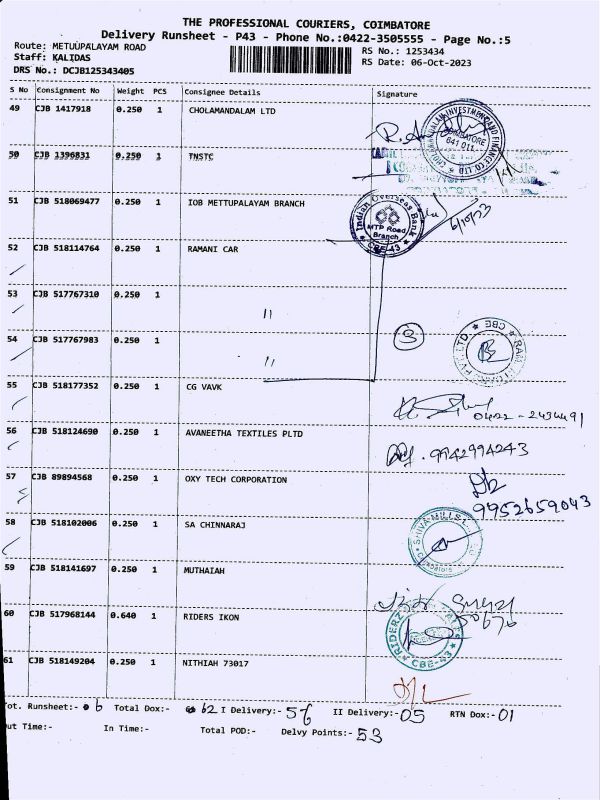 THE PROFESSIONAL COURIERS, COIMBATORE
Delivery Runsheet - P43 - Phone No.:0422-3505555 - Page No.:5
Route: METUUPALAYAM ROAD
RS No.: 1253434
Staff: KALIDAS
RS Date: 06-Oct-2023
DRS No.: DCJB125343405
S No Consignment No Weight PCS Consignee Details Signature
49 CJB 1417918 0.250 1 CHOLAMANDALAM LTD
CHOLAMANDALAM INVESTMENT AND FINANCE CO. LTD
COIMBATORE
641 011
50 CJB 1396831 0.250 1 TNSTC
51 CJB 518069477 0.250 1 IOB METTUPALAYAM BRANCH
Indian Overseas Bank
MTP Road
Branch
CBE-43
6/10/23
52 CJB 518114764 0.250 1 RAMANI CAR
53 CJB 517767310 0.250 1 "
54 CJB 517767983 0.250 1 "
3
CBE
PVT. LTD.
55 CJB 518177352 0.250 1 CG VAVK
0422-2434491
56 CJB 518124690 0.250 1 AVANEETHA TEXTILES PLTD
9942994243
57 CJB 89894568 0.250 1 OXY TECH CORPORATION
9952659043
58 CJB 518102006 0.250 1 SA CHINNARAJ
SHIVA MILLS
59 CJB 518141697 0.250 1 MUTHAIAH
60 CJB 517968144 0.640 1 RIDERS IKON
RIDERZ
CBE-43
61 CJB 518149204 0.250 1 NITHIAH 73017
ot. Runsheet:- 6 Total Dox:- 62 I Delivery:- 56 II Delivery:- 05 RTN Dox:- 01
ut Time:- In Time:- Total POD:- Delvy Points:- 53